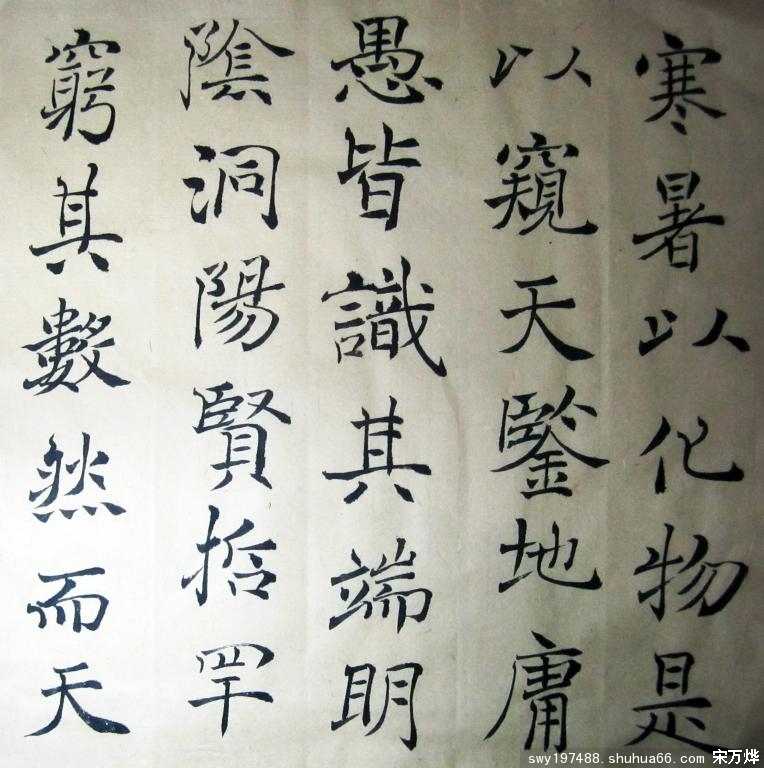 寒暑以化物是
以窺天鑒地庸
愚皆識其端明
陰洞陽賢哲罕
窮其數然而天
swy197488.shuhua66.com 宋万烨